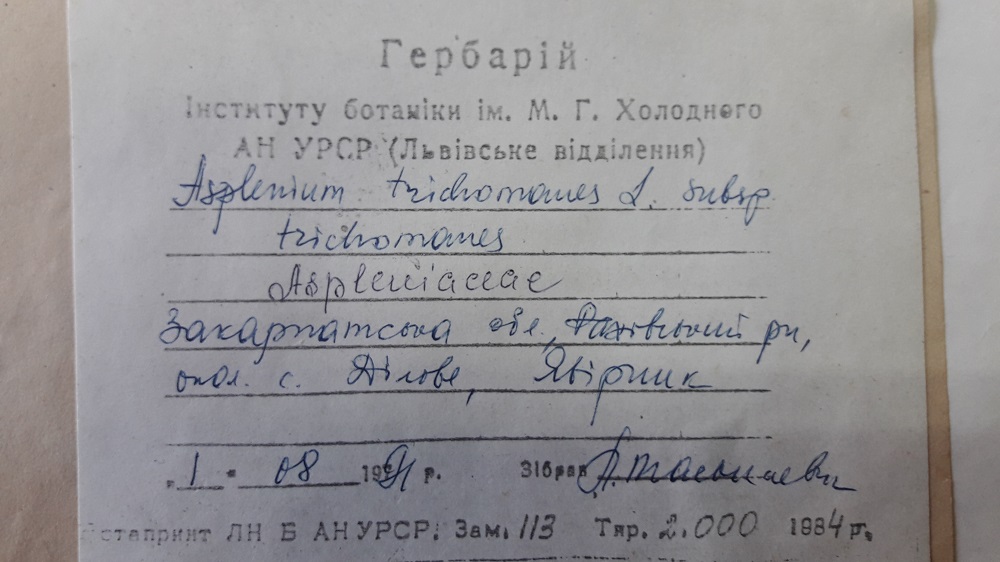 Гербарій
Інституту ботаніки ім. М. Г. Холодного
АН УРСР (Львівське відділення)
Asplenium trichomanes L. subsp.
trichomanes
Aspleniaceae
Закарпатська обл., Рахівський рн,
окол. с. Ділове, Явірник
"1" 08 1991 р. Зібрав
ЛН Б АН УРСР. Зам. 113 Тир. 2.000 1984 р.